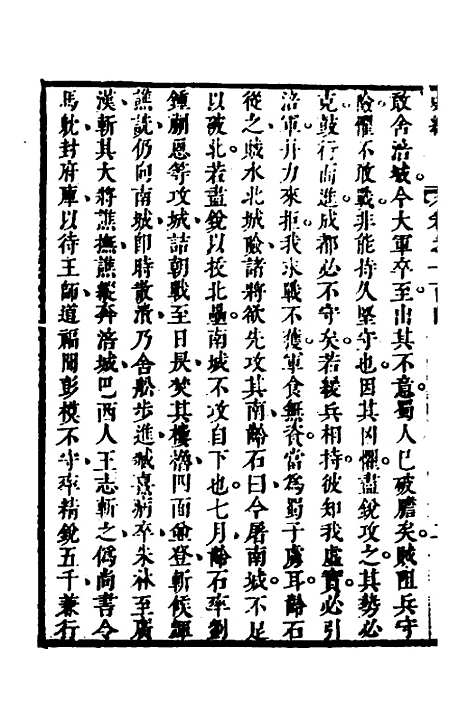 敢舍涪城今大軍卒至出其不意蜀人已破膽矣賊阻兵守
險懼不敢戰非能持久堅守也因其凶懼盡銳攻之其勢必
克鼓行而進成都必不守矣若緩兵相持彼知我虛實必引
涪軍并力來拒我求戰不獲軍食無資當爲蜀子虜耳齡石
從之賊水北城險諸將欲先攻其南齡石曰今屠南城不足
以破北若盡銳以拔北壘南城不攻自下也七月齡石率劉
鍾蒯恩等攻城詰朝戰至日昃焚其樓櫓四面並登斬侯輝
譙詵仍向南城卽時散潰乃舍船步進臧熹病卒朱林至廣
漢斬其大將譙撫譙縱奔涪城巴西人王志斬之僞尙書令
馬躭封府庫以待王師道福聞彭模不守率精銳五千兼行